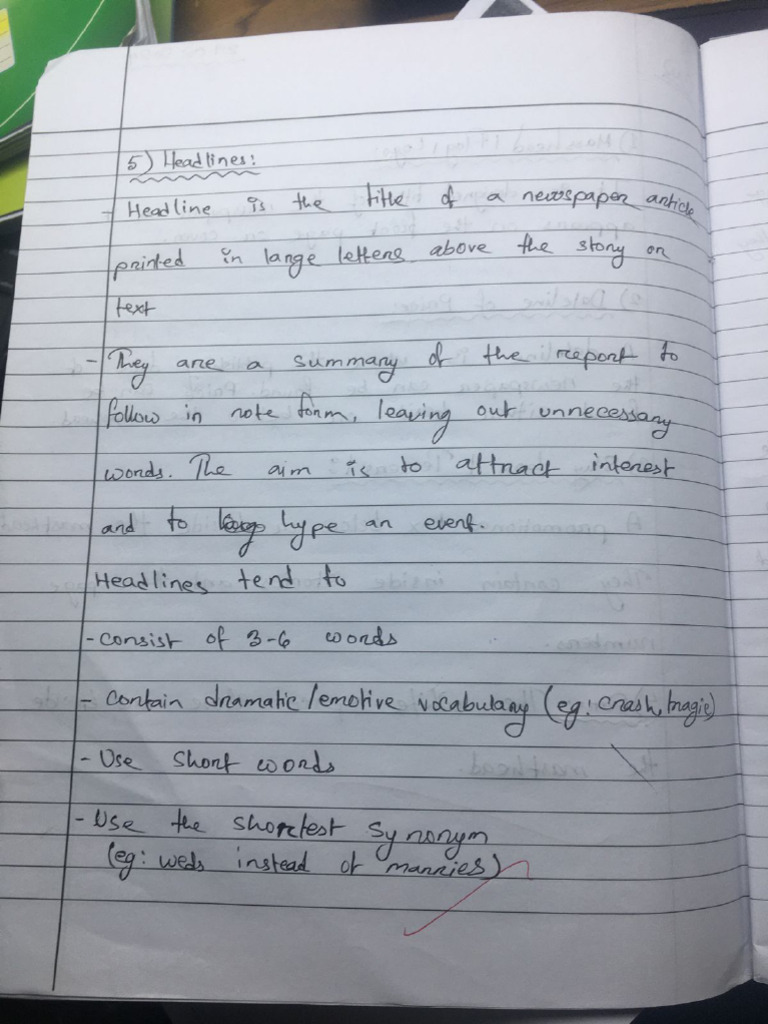 5) Headlines:
- Headline is the title of a newspaper article
printed in large letters above the story or
text
- They are a summary of the report to
follow in note form, leaving out unnecessary
words. The aim is to attract interest
and to hype an event.
Headlines tend to
- consist of 3-6 words
- contain dramatic/emotive vocabulary (eg: crash, tragic)
- Use short words
- Use the shortest synonym
(eg: weds instead of marries)